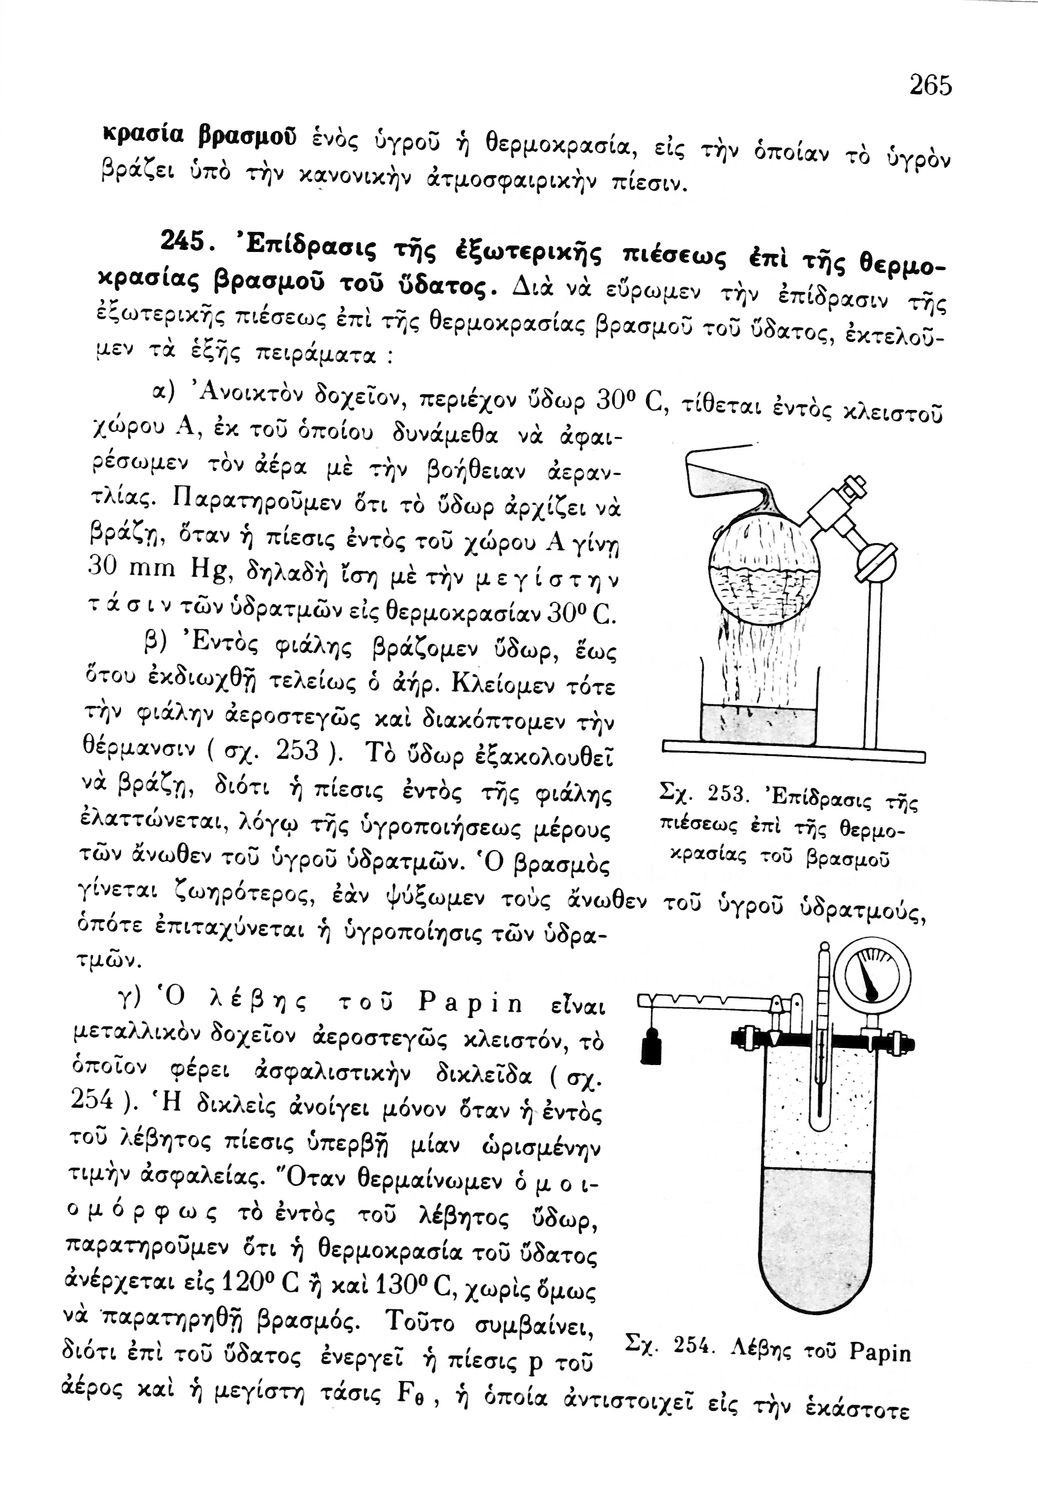 265
κρασία βρασμοῦ ἑνὸς ὑγροῦ ἡ θερμοκρασία, εἰς τὴν ὁποίαν τὸ ὑγρὸν
βράζει ὑπὸ τὴν κανονικὴν ἀτμοσφαιρικὴν πίεσιν.
245. Ἐπίδρασις τῆς ἐξωτερικῆς πιέσεως ἐπὶ τῆς θερμο-
κρασίας βρασμοῦ τοῦ ὕδατος. Διὰ νὰ εὕρωμεν τὴν ἐπίδρασιν τῆς
ἐξωτερικῆς πιέσεως ἐπὶ τῆς θερμοκρασίας βρασμοῦ τοῦ ὕδατος, ἐκτελοῦ-
μεν τὰ ἑξῆς πειράματα :
α) Ἀνοικτὸν δοχεῖον, περιέχον ὕδωρ 30⁰ C, τίθεται ἐντὸς κλειστοῦ
χώρου Α, ἐκ τοῦ ὁποίου δυνάμεθα νὰ ἀφαι-
ρέσωμεν τὸν ἀέρα μὲ τὴν βοήθειαν ἀεραν-
τλίας. Παρατηροῦμεν ὅτι τὸ ὕδωρ ἀρχίζει νὰ
βράζῃ, ὅταν ἡ πίεσις ἐντὸς τοῦ χώρου Α γίνῃ
30 mm Hg, δηλαδὴ ἴση μὲ τὴν μεγίστην
τάσιν τῶν ὑδρατμῶν εἰς θερμοκρασίαν 30⁰ C.
β) Ἐντὸς φιάλης βράζομεν ὕδωρ, ἕως
ὅτου ἐκδιωχθῇ τελείως ὁ ἀήρ. Κλείομεν τότε
τὴν φιάλην ἀεροστεγῶς καὶ διακόπτομεν τὴν
θέρμανσιν ( σχ. 253 ). Τὸ ὕδωρ ἐξακολουθεῖ
νὰ βράζῃ, διότι ἡ πίεσις ἐντὸς τῆς φιάλης
ἐλαττώνεται, λόγῳ τῆς ὑγροποιήσεως μέρους
τῶν ἄνωθεν τοῦ ὑγροῦ ὑδρατμῶν. Ὁ βρασμὸς
γίνεται ζωηρότερος, ἐὰν ψύξωμεν τοὺς ἄνωθεν τοῦ ὑγροῦ ὑδρατμούς,
ὁπότε ἐπιταχύνεται ἡ ὑγροποίησις τῶν ὑδρα-
τμῶν.
Σχ. 253. Ἐπίδρασις τῆς
πιέσεως ἐπὶ τῆς θερμο-
κρασίας τοῦ βρασμοῦ
γ) Ὁ λέβης τοῦ Papin εἶναι
μεταλλικὸν δοχεῖον ἀεροστεγῶς κλειστόν, τὸ
ὁποῖον φέρει ἀσφαλιστικὴν δικλεῖδα ( σχ.
254 ). Ἡ δικλεὶς ἀνοίγει μόνον ὅταν ἡ ἐντὸς
τοῦ λέβητος πίεσις ὑπερβῇ μίαν ὡρισμένην
τιμὴν ἀσφαλείας. Ὅταν θερμαίνωμεν ὁμοι-
ομόρφως τὸ ἐντὸς τοῦ λέβητος ὕδωρ,
παρατηροῦμεν ὅτι ἡ θερμοκρασία τοῦ ὕδατος
ἀνέρχεται εἰς 120⁰ C ἢ καὶ 130⁰ C, χωρὶς ὅμως
νὰ παρατηρηθῇ βρασμός. Τοῦτο συμβαίνει,
διότι ἐπὶ τοῦ ὕδατος ἐνεργεῖ ἡ πίεσις p τοῦ
ἀέρος καὶ ἡ μεγίστη τάσις Fθ , ἡ ὁποία ἀντιστοιχεῖ εἰς τὴν ἑκάστοτε
Σχ. 254. Λέβης τοῦ Papin